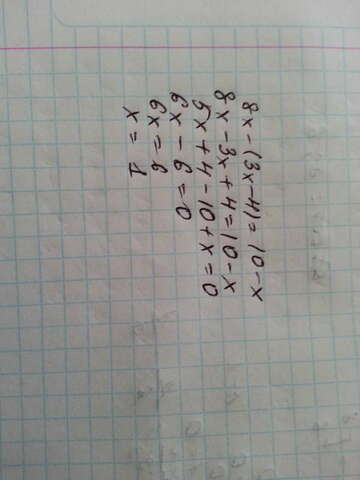 8x - (3x - 4) = 10 - x
8x - 3x + 4 = 10 - x
5x + 4 - 10 + x = 0
6x - 6 = 0
6x = 6
x = 1